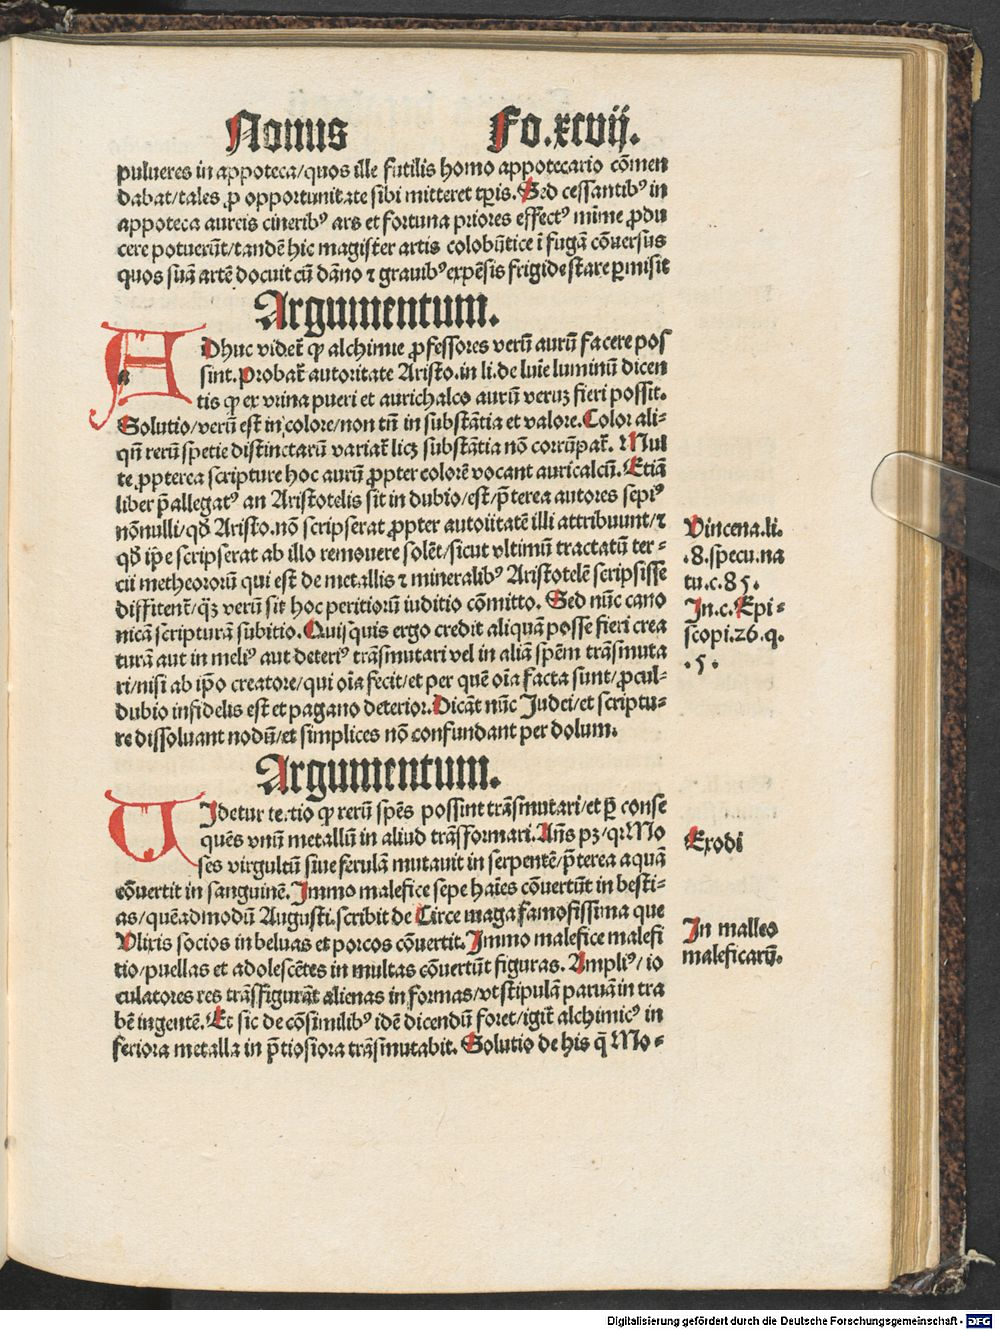 Nonus Fo.xcvij.
pulueres in appoteca/quos ille futilis homo appotecario cōmen
dabat/tales ꝓ opportunitate sibi mitteret tꝑis. Sed cessantibꝰ in
appoteca aureis cineribꝰ ars et fortuna priores effectꝰ mime ꝓdu
cere potuerūt/tandē hic magister artis colobūtice ī fugā cōuersus
quos suā artē docuit cū dāno ⁊ grauibꝰ expēsis frigide stare ꝑmisit
Argumentum.
ADhuc videt̄ ꝙ alchimie ꝓfessores verū aurū facere pos
sint. Probat̄ autoritate Aristo.in li.de luīe luminū dicen
tis ꝙ ex vrina pueri et aurichalco aurū veruꝫ fieri possit.
Solutio/verū est in colore/non tn̄ in substātia et valore. Color ali-
qn̄ rerū spetie distinctarū variat̄ licꝫ substātia nō corrūpat̄. Mul
te ꝓpterea scripture hoc aurū ꝓpter colorē vocant auricalcū. Etiā
liber p̄allegatꝰ an Aristotelis sit in dubio/est/p̄terea autores sepiꝰ
nōnulli/qd̄ Aristo.nō scripserat ꝓpter autoritatē illi attribuunt/⁊
qd̄ ip̄e scripserat ab illo remouere solēt/sicut vltimū tractatū ter-
cii metheororū qui est de metallis ⁊ mineralibꝰ Aristotelē scripsisse
diffitent̄/qꝫ verū sit hoc peritiorū iuditio cōmitto. Sed nūc cano
nicā scripturā subitio. Quisquis ergo credit aliquā posse fieri crea
turā aut in meliꝰ aut deteriꝰ trāsmutari vel in aliā spēm trāsmuta
ri/nisi ab ip̄o creatore/qui oīa fecit/et per quē oīa facta sunt/ꝓcul-
dubio infidelis est et pagano deterior. Dicāt nūc Judei/et scriptu-
re dissoluant nodū/et simplices nō confundant per dolum.
Vincena.li.
.8.specu.na
tu.c.85.
In.c.Epi-
scopi.26.q.
.5.
Argumentum.
VIdetur tertio ꝙ rerū spēs possint trāsmutari/et ꝑ conse
quēs vnū metallū in aliud trāsformari. Añs pꝫ/qꝛ Mo
ses virgultū siue ferulā mutauit in serpentē/p̄terea aquā
cōuertit in sanguinē. Immo malefice sepe hoīes cōuertūt in besti-
as/quēadmodū Augusti.scribit de Circe maga famosissima que
Vlixis socios in beluas et porcos cōuertit. Immo malefice malefi
tio/puellas et adolescētes in multas cōuertūt figuras. Ampliꝰ/io
culatores res trāsfigurāt alienas in formas/vt stipulā paruā in tra
bē ingentē. Et sic de cōsimilibꝰ idē dicendū foret/igit̄ alchimicꝰ in
feriora metalla in p̄tiosiora trāsmutabit. Solutio de his q̄ Mo-
Exodi
In malleo
maleficarū.
Digitalisierung gefördert durch die Deutsche Forschungsgemeinschaft - DFG